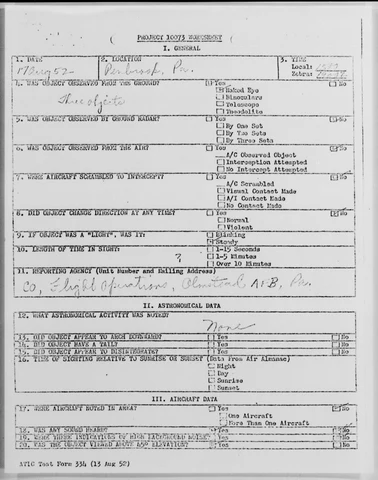 PROJECT 10073 WORKSHEET
I. GENERAL
1. DATE
2. LOCATION
3. TYPE
17 Aug 52
Penbrook, Pa.
Local:
Zebra:
4. WAS OBJECT OBSERVED FROM THE GROUND?
Yes
No
Three objects
Naked Eye
Binoculars
Telescope
Theodolite
5. WAS OBJECT OBSERVED BY GROUND RADAR?
Yes
No
By One Set
By Two Sets
By Three Sets
6. WAS OBJECT OBSERVED FROM THE AIR?
Yes
No
A/C Observed Object
Interception Attempted
No Intercept Attempted
7. WERE AIRCRAFT SCRAMBLED TO INTERCEPT?
Yes
No
A/C Scrambled
Visual Contact Made
A/I Contact Made
No Contact Made
8. DID OBJECT CHANGE DIRECTION AT ANY TIME?
Yes
No
Normal
Violent
9. IF OBJECT WAS A "LIGHT", WAS IT:
Blinking
Steady
10. LENGTH OF TIME IN SIGHT:
1-15 Seconds
?
1-5 Minutes
Over 10 Minutes
11. REPORTING AGENCY (Unit Number and Mailing Address)
CO, Flight Operations, Olmstead AFB, Pa.
II. ASTRONOMICAL DATA
12. WHAT ASTRONOMICAL ACTIVITY WAS NOTED?
None
13. DID OBJECT APPEAR TO ARCH DOWNWARD?
Yes
No
14. DID OBJECT HAVE A TAIL?
Yes
No
15. DID OBJECT APPEAR TO DISINTEGRATE?
Yes
No
16. TIME OF SIGHTING RELATIVE TO SUNRISE OR SUNSET (From Air Almanac)
Night
Day
Sunrise
Sunset
III. AIRCRAFT DATA
17. WERE AIRCRAFT NOTED IN AREA?
Yes
No
One Aircraft
More Than One Aircraft
18. WAS ANY SOUND HEARD?
Yes
No
19. WERE THERE INDICATIONS OF HIGH BACKGROUND NOISE?
Yes
No
20. WAS THE OBJECT VIEWED ABOVE 45° ELEVATION?
Yes
No
ATIC Test Form 334 (13 Aug 52)